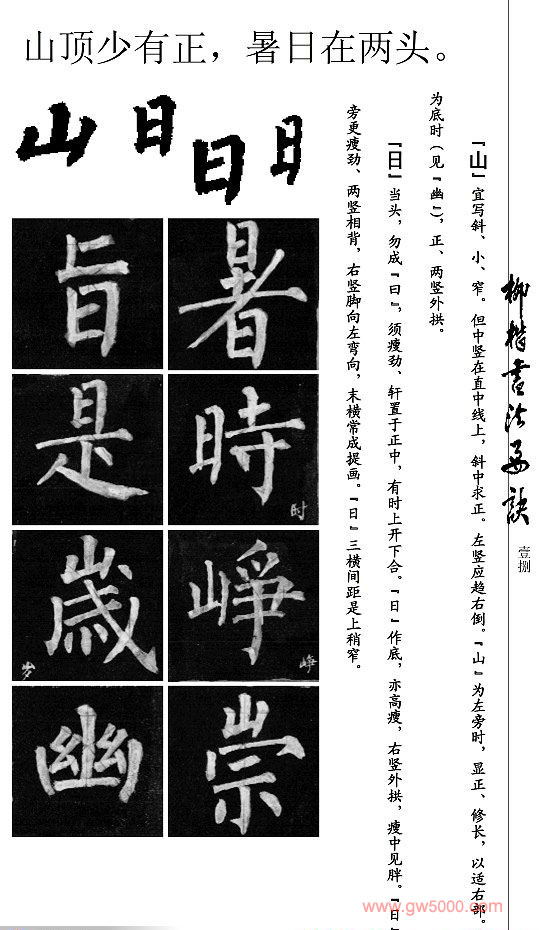 山顶少有正，暑日在两头。
山 日 日 日
暑 旨
時 是
时
峥 歲
峥 岁
崇 幽
『山』宜写斜、小、窄。但中竖在直中线上，斜中求正。左竖应趋右倒。『山』为左旁时，显正、修长，以适右部。
为底时（见『幽』），正、两竖外拱。
『日』当头，勿成『曰』，须瘦劲、轩置于正中，有时上开下合。『日』作底，亦高瘦，右竖外拱，瘦中见胖。『日』
旁更瘦劲、两竖相背，右竖脚向左弯向，末横常成提画。『日』三横间距是上稍窄。
柳楷书法要诀
壹捌
www.gw5000.com